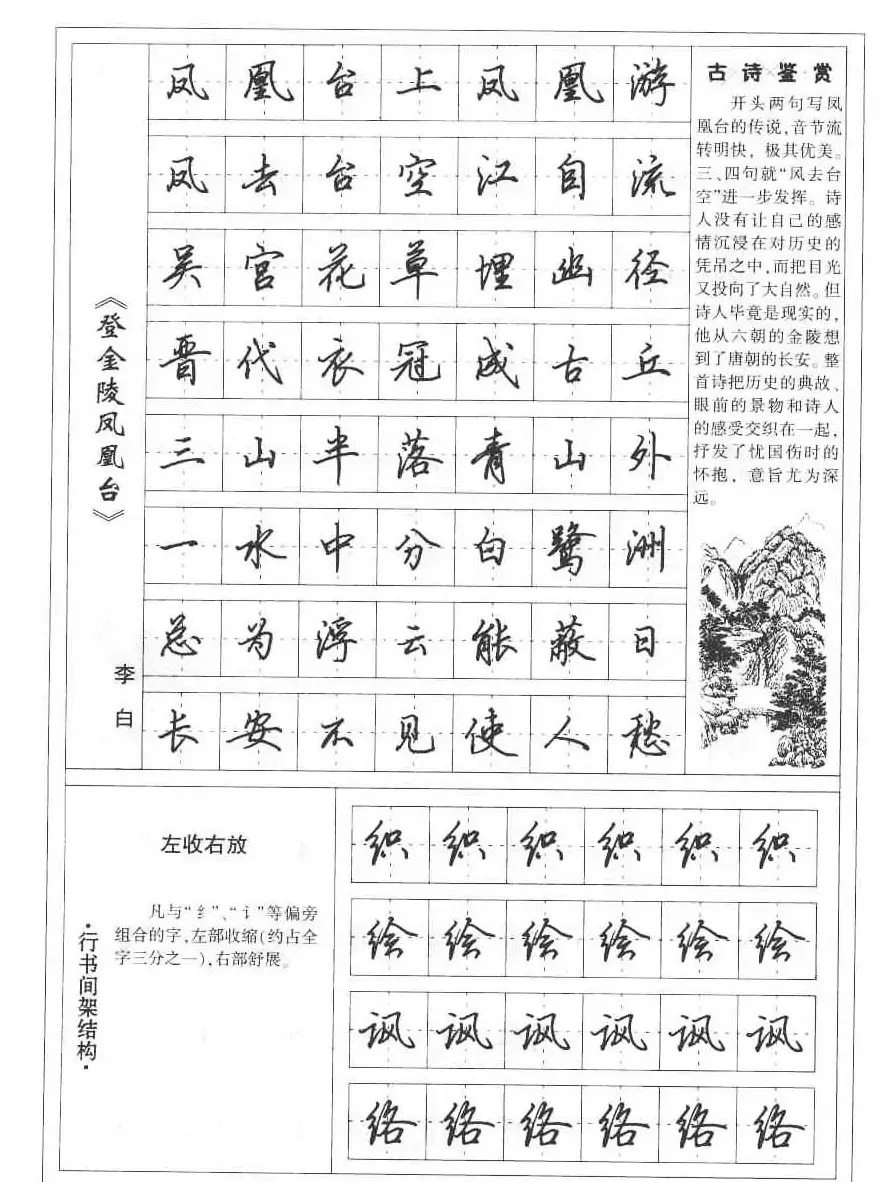 《登金陵凤凰台》
李白
凤凰台上凤凰游
凤去台空江自流
吴宫花草埋幽径
晋代衣冠成古丘
三山半落青山外
一水中分白鹭洲
总为浮云能蔽日
长安不见使人愁
古诗鉴赏
开头两句写凤
凰台的传说,音节流
转明快，极其优美。
三、四句就“凤去台
空”进一步发挥。诗
人没有让自己的感
情沉浸在对历史的
凭吊之中,而把目光
又投向了大自然。但
诗人毕竟是现实的,
他从六朝的金陵想
到了唐朝的长安。整
首诗把历史的典故、
眼前的景物和诗人
的感受交织在一起,
抒发了忧国伤时的
怀抱，意旨尤为深
远。
·行书间架结构·
左收右放
凡与“纟”、“讠”等偏旁
组合的字,左部收缩(约占全
字三分之一),右部舒展。
织织织织织织
绘绘绘绘绘绘
讽讽讽讽讽讽
络络络络络络